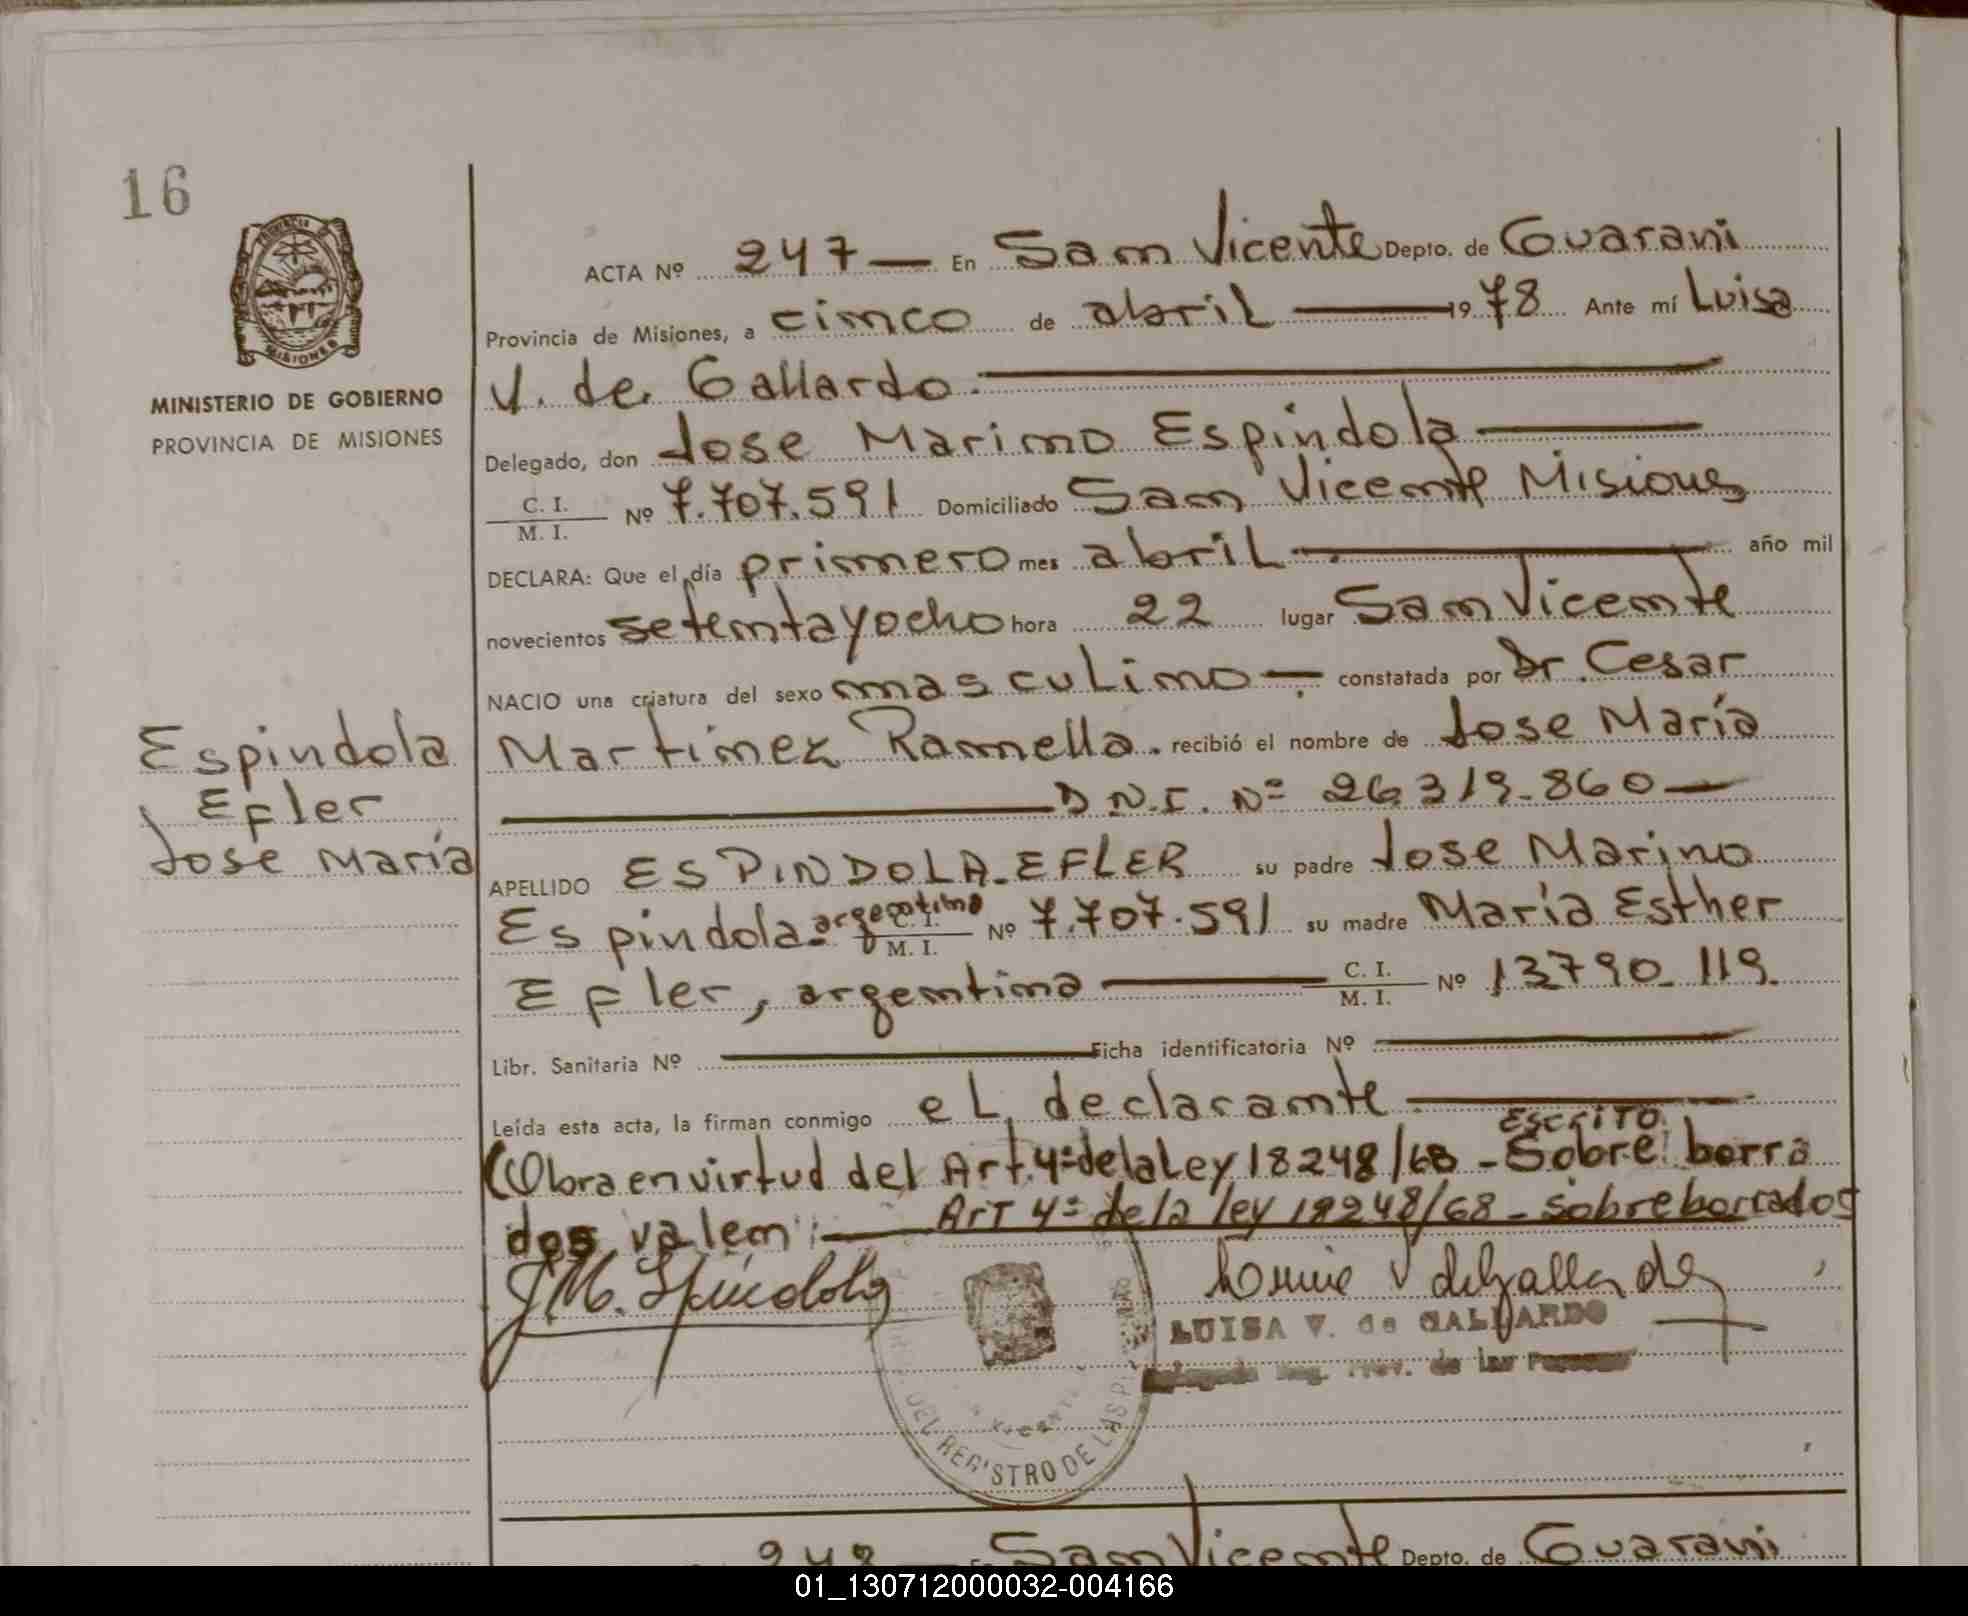 16
PROVINCIA
MISIONES
MINISTERIO DE GOBIERNO
PROVINCIA DE MISIONES
ACTA Nº 247 — En San Vicente Depto. de Guarani
Provincia de Misiones, a cinco de abril — 1978 Ante mí Luisa
V. de Gallardo. —
Delegado, don Jose Marino Espindola —
C. I. / M. I. Nº 7.707.591 Domiciliado San Vicente Misiones
DECLARA: Que el día primero mes abril — año mil
novecientos setentayocho hora 22 lugar San Vicente
NACIO una criatura del sexo masculino — constatada por Dr. Cesar
Martinez Ramella. recibió el nombre de Jose María
— D.N.I. Nº 26.319.860 —
Espindola
Efler
Jose María
APELLIDO ESPINDOLA-EFLER su padre Jose Marino
Espindola argentino C. I. / M. I. Nº 7.707.591 su madre María Esther
Efler, argentina — C. I. / M. I. Nº 13790.119.
Libr. Sanitaria Nº — Ficha identificatoria Nº —
Leída esta acta, la firman conmigo el declarante —
ESCRITO
(Obra en virtud del Art. 4º de la Ley 18248/68 - Sobre borra
dos valen: — Art 4º de la ley 18248/68 - sobreborrados
J.M. Espindola
Luisa V de Gallardo
LUISA V. de GALLARDO
Reg. Prov. de las
DEL REGISTRO DE LAS
248 — En San Vicente Depto. de Guarani
01_130712000032-004166